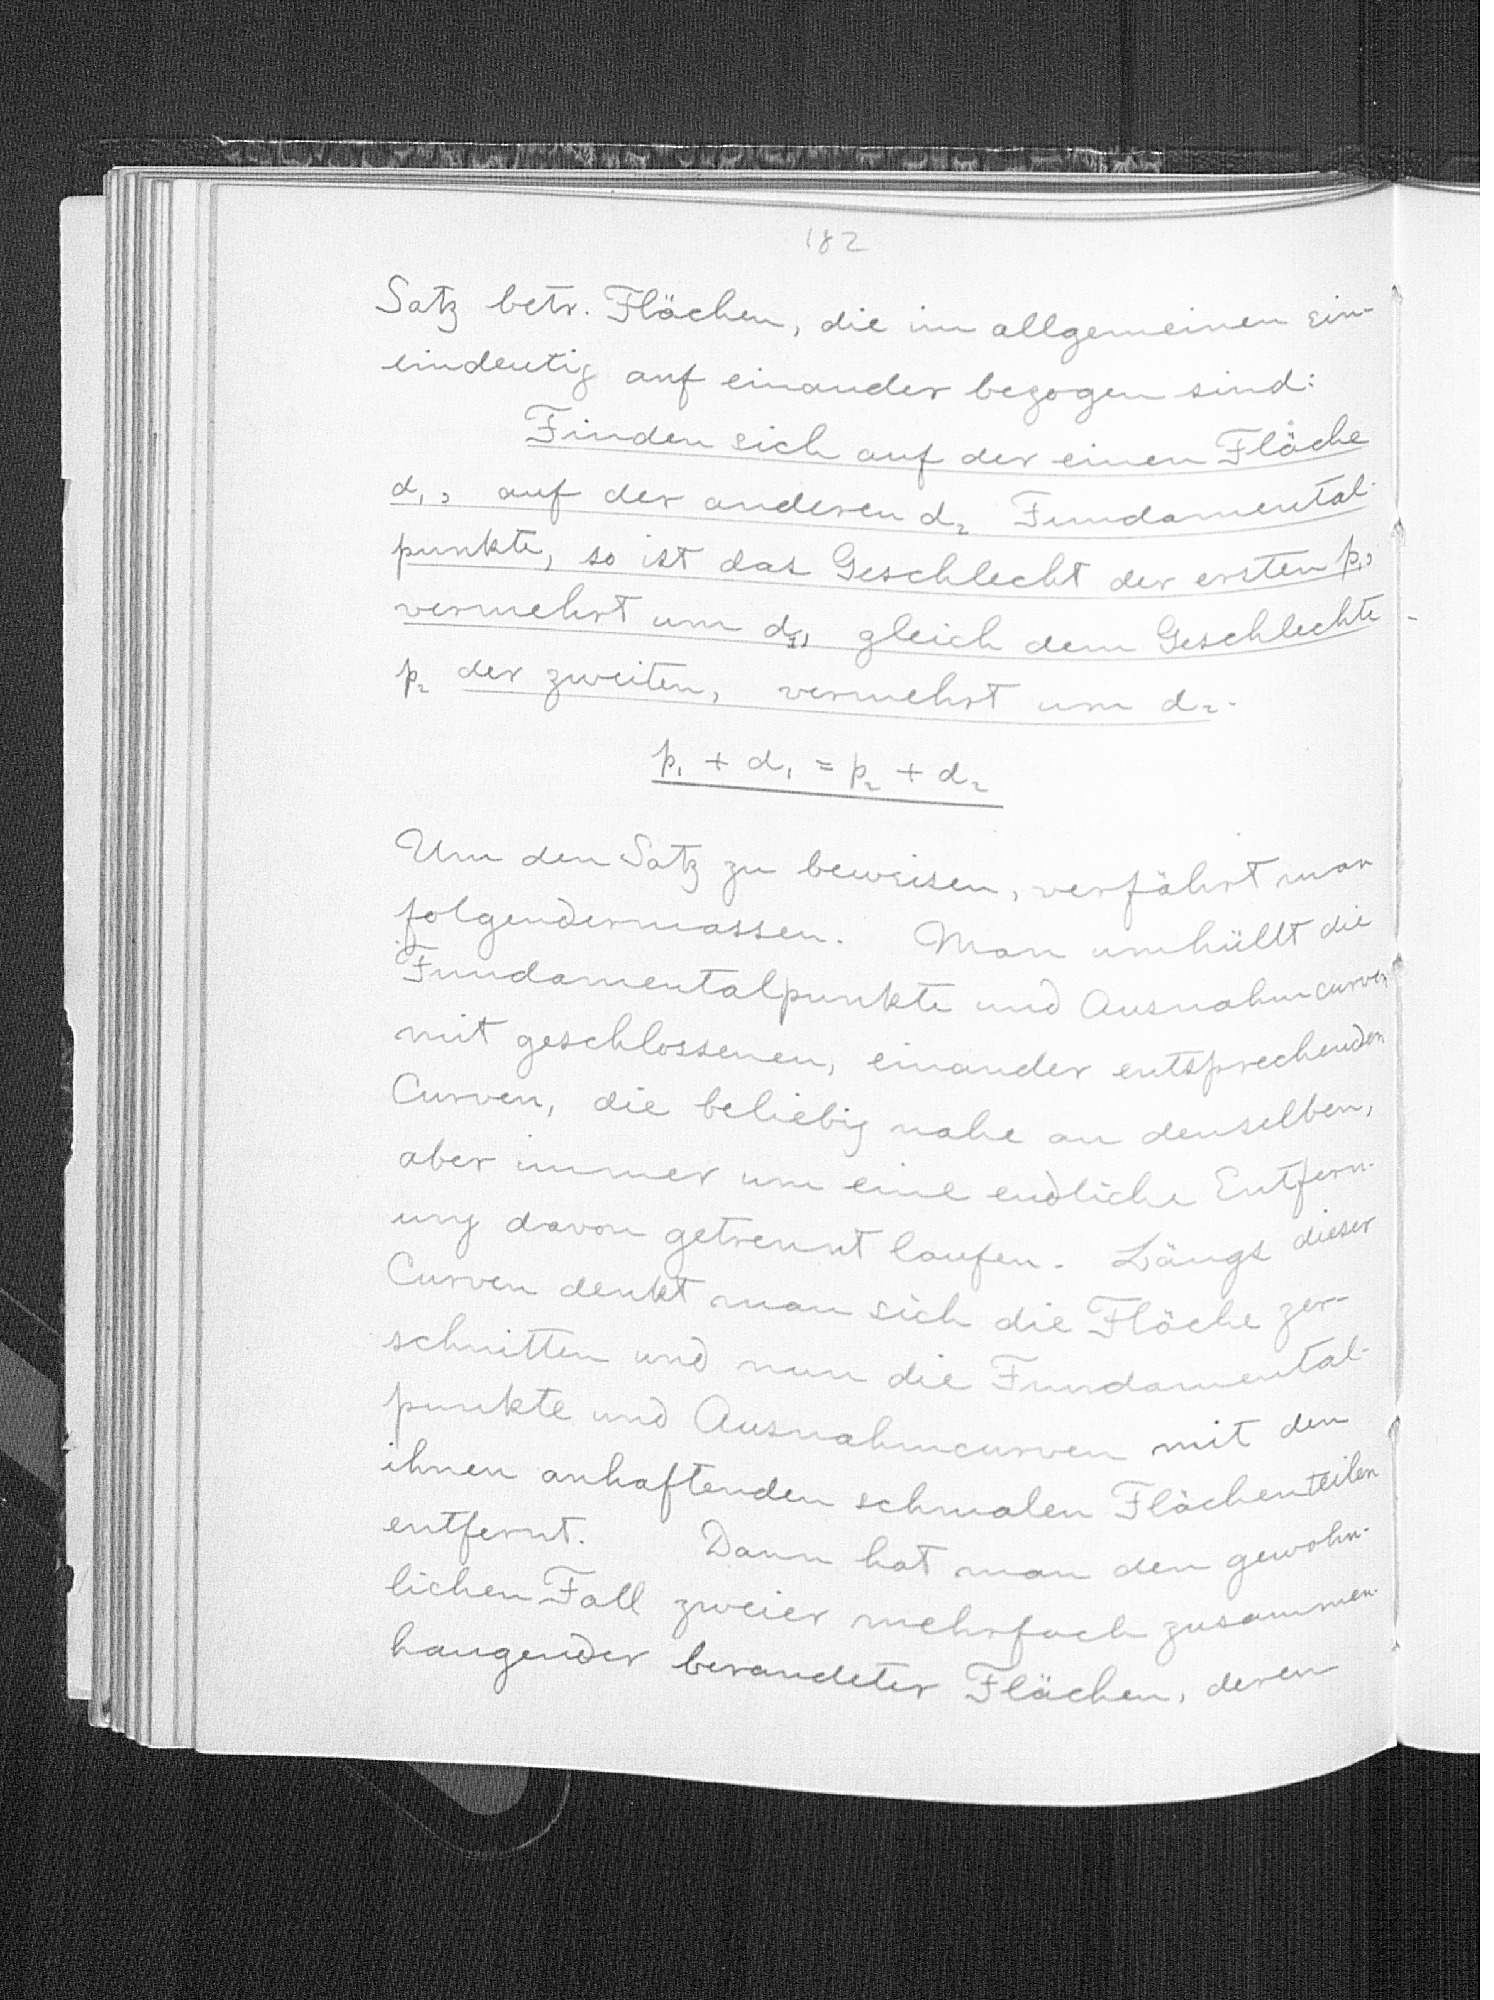 182
Satz betr. Flächen, die im allgemeinen ein-
eindeutig auf einander bezogen sind:
Finden sich auf der einen Fläche
d₁, auf der anderen d₂ Fundamental-
punkte, so ist das Geschlecht der ersten p₁,
vermehrt um d₁, gleich dem Geschlechte
p₂ der zweiten, vermehrt um d₂.
p₁ + d₁ = p₂ + d₂
Um den Satz zu beweisen, verfährt man
folgendermassen. Man umhüllt die
Fundamentalpunkte und Ausnahmcurven
mit geschlossenen, einander entsprechenden
Curven, die beliebig nahe an denselben,
aber immer um eine endliche Entfern-
ung davon getrennt laufen. Längs dieser
Curven denkt man sich die Fläche zer-
schnitten und nun die Fundamental-
punkte und Ausnahmcurven mit den
ihnen anhaftenden schmalen Flächenteilen
entfernt. Dann hat man den gewohn-
lichen Fall zweier mehrfach zusammen-
hangender berandeter Flächen, deren